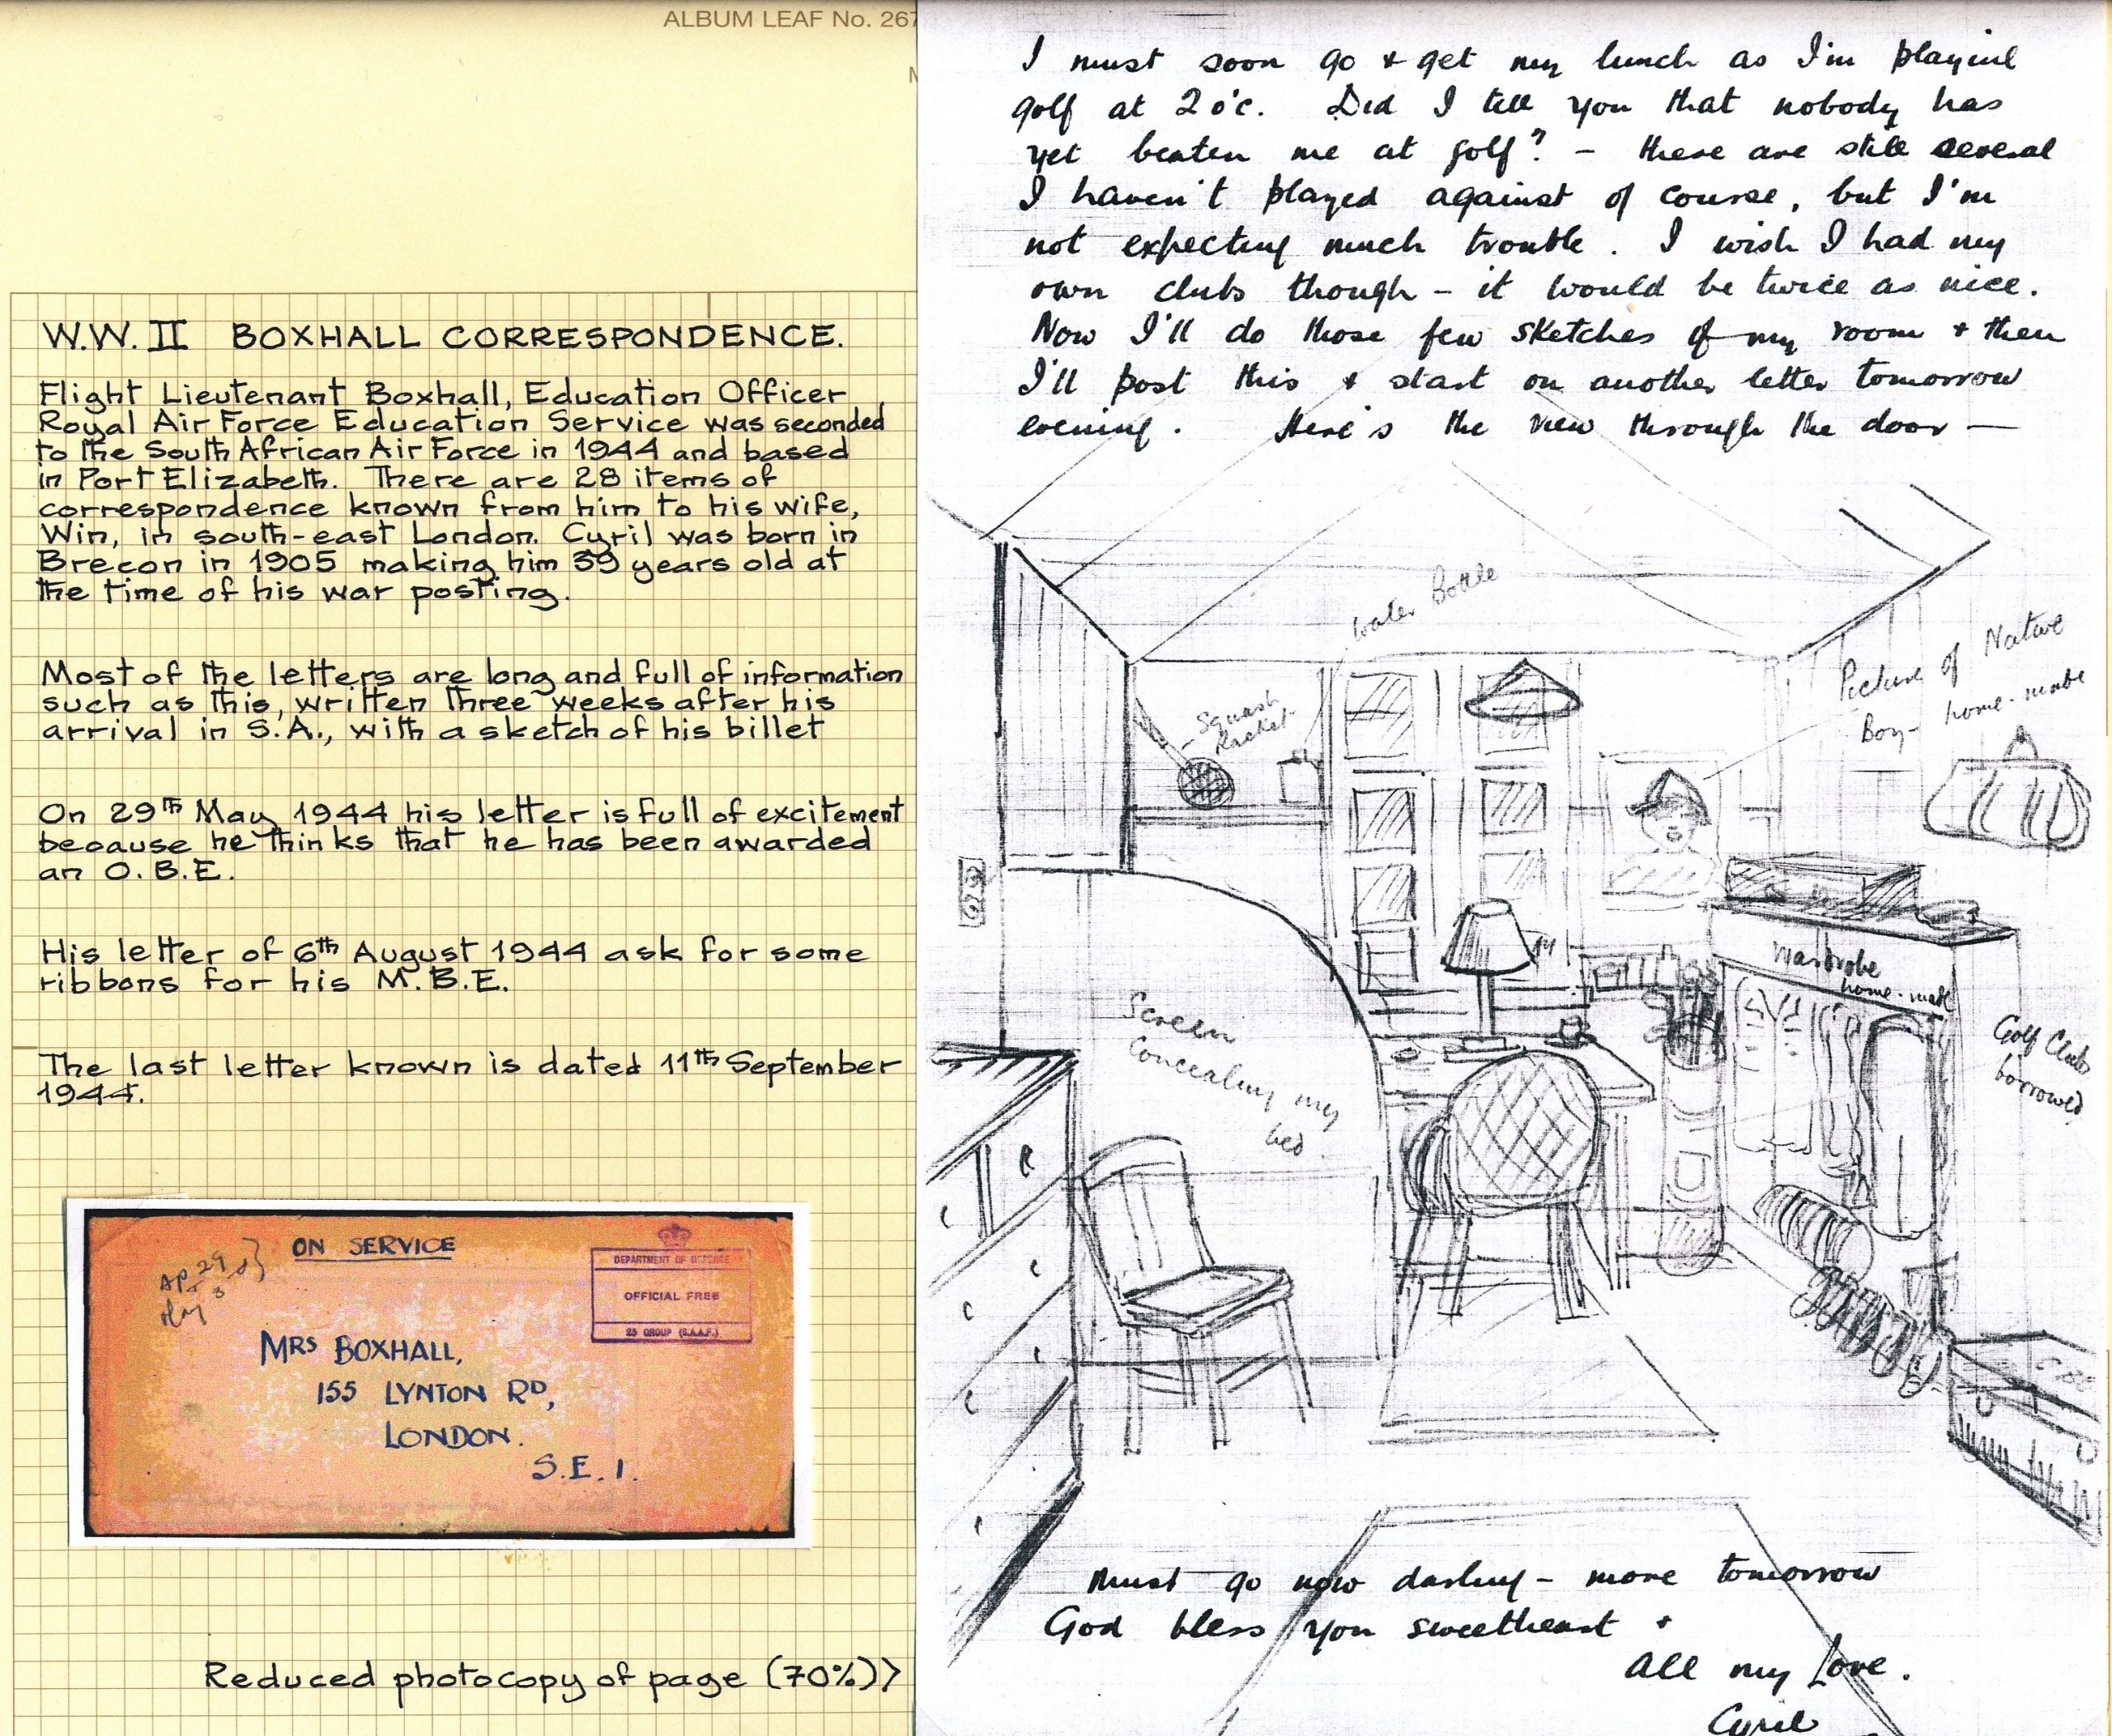 ALBUM LEAF No. 267
W.W. II BOXHALL CORRESPONDENCE.
Flight Lieutenant Boxhall, Education Officer
Royal Air Force Education Service was seconded
to the South African Air Force in 1944 and based
in Port Elizabeth. There are 28 items of
correspondence known from him to his wife,
Win, in south-east London. Cyril was born in
Brecon in 1905 making him 39 years old at
the time of his war posting.
Most of the letters are long and full of information
such as this, written three weeks after his
arrival in S.A., with a sketch of his billet
On 29th May 1944 his letter is full of excitement
because he thinks that he has been awarded
an O.B.E.
His letter of 6th August 1944 ask for some
ribbons for his M.B.E.
The last letter known is dated 11th September
1944.
ON SERVICE
DEPARTMENT OF DEFENCE
OFFICIAL FREE
25 GROUP (S.A.A.F.)
MRS BOXHALL,
155 LYNTON RD,
LONDON.
S.E.1.
Reduced photocopy of page (70%)>
I must soon go & get my lunch as I'm playing
golf at 2 o'c. Did I tell you that nobody has
yet beaten me at golf? - there are still several
I haven't played against of course, but I'm
not expecting much trouble. I wish I had my
own clubs though - it would be twice as nice.
Now I'll do those few sketches of my room & then
I'll post this & start on another letter tomorrow
evening. Here's the view through the door —
Water Bottle
Squash
Racket
Picture of Native
Boy - home-made
Wardrobe
home-made
Golf Clubs
borrowed
Screen
concealing my
bed
Must go now darling - more tomorrow
God bless you sweetheart &
All my Love.
Cyril